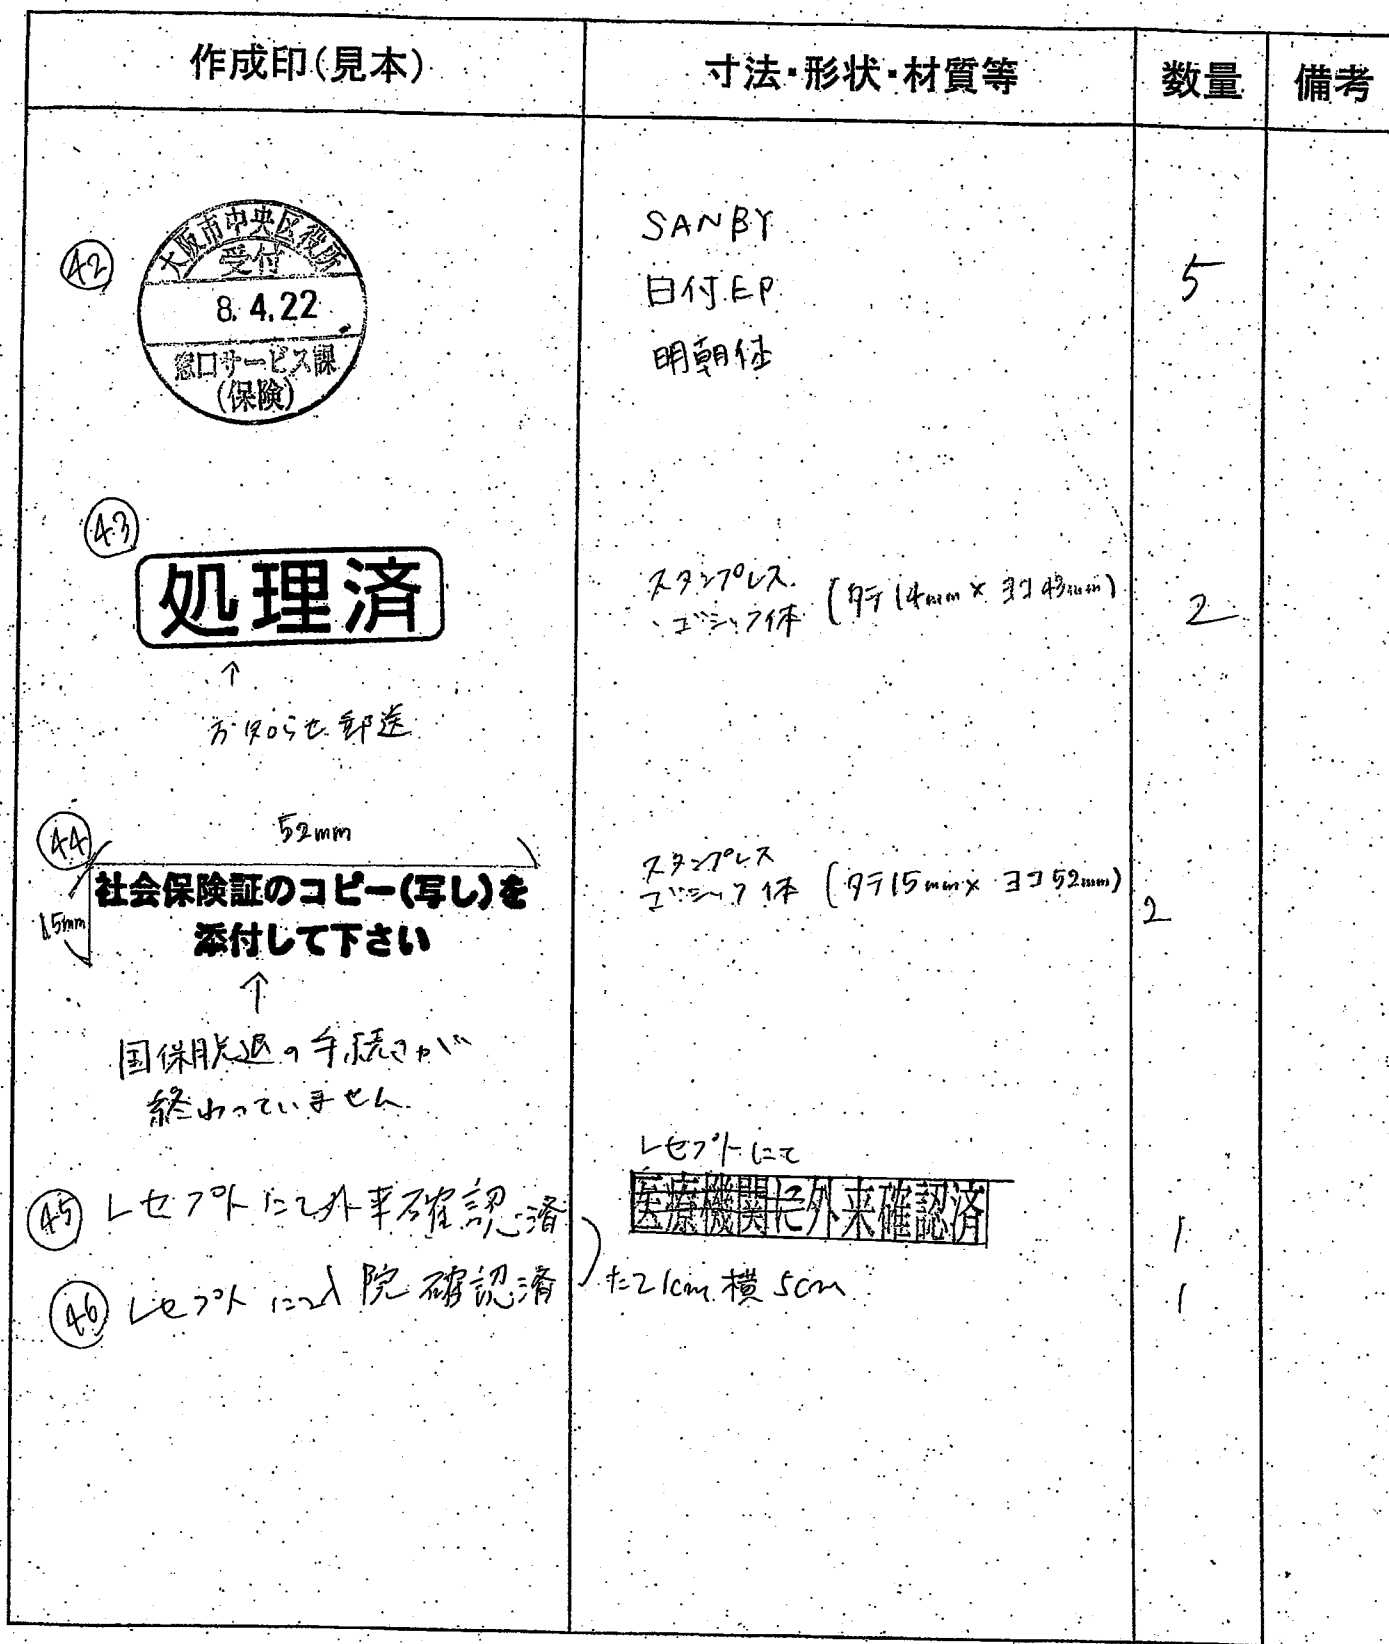 作成印(見本) 寸法・形状・材質等 数量 備考
㊷
大阪市中央区役所
受付
8.4.22
窓口サービス課
(保険)
SANBY
日付EP
明朝体
5
㊸
処理済
↑
お知らせ郵送
スタンプレス
ゴシック体 (タテ14mm×ヨコ43mm)
2
㊹
52mm
15mm
社会保険証のコピー(写し)を
添付して下さい
↑
国保脱退の手続きが
終わっていません
スタンプレス
ゴシック体 (タテ15mm×ヨコ52mm)
2
㊺ レセプトにて外来確認済
レセプトにて
医療機関に外来確認済
1
㊻ レセプトにて入院確認済
たて1cm 横5cm
1